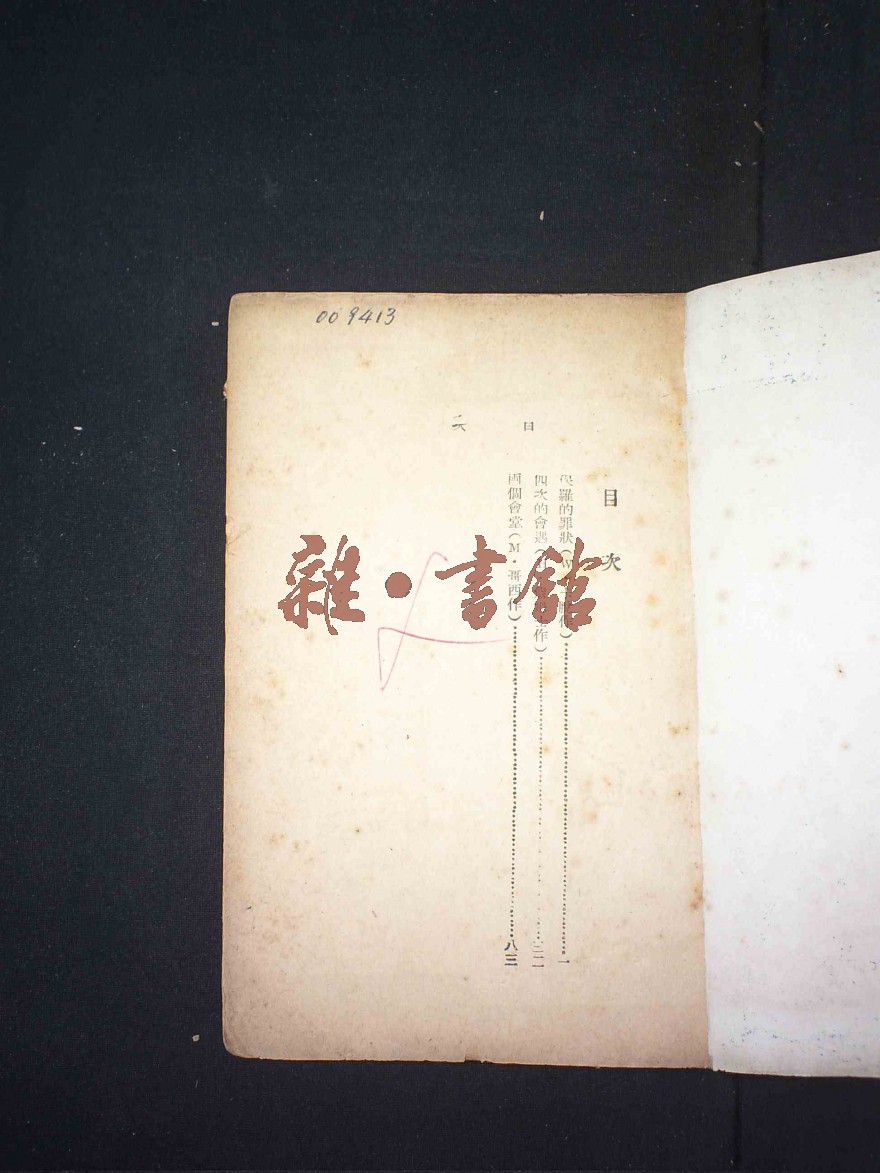 009413
目次
目次
羅的罪狀（W作）
四次的會遇（作）
兩個會堂（M·哥西作）
一
三二
八三
雜·書館